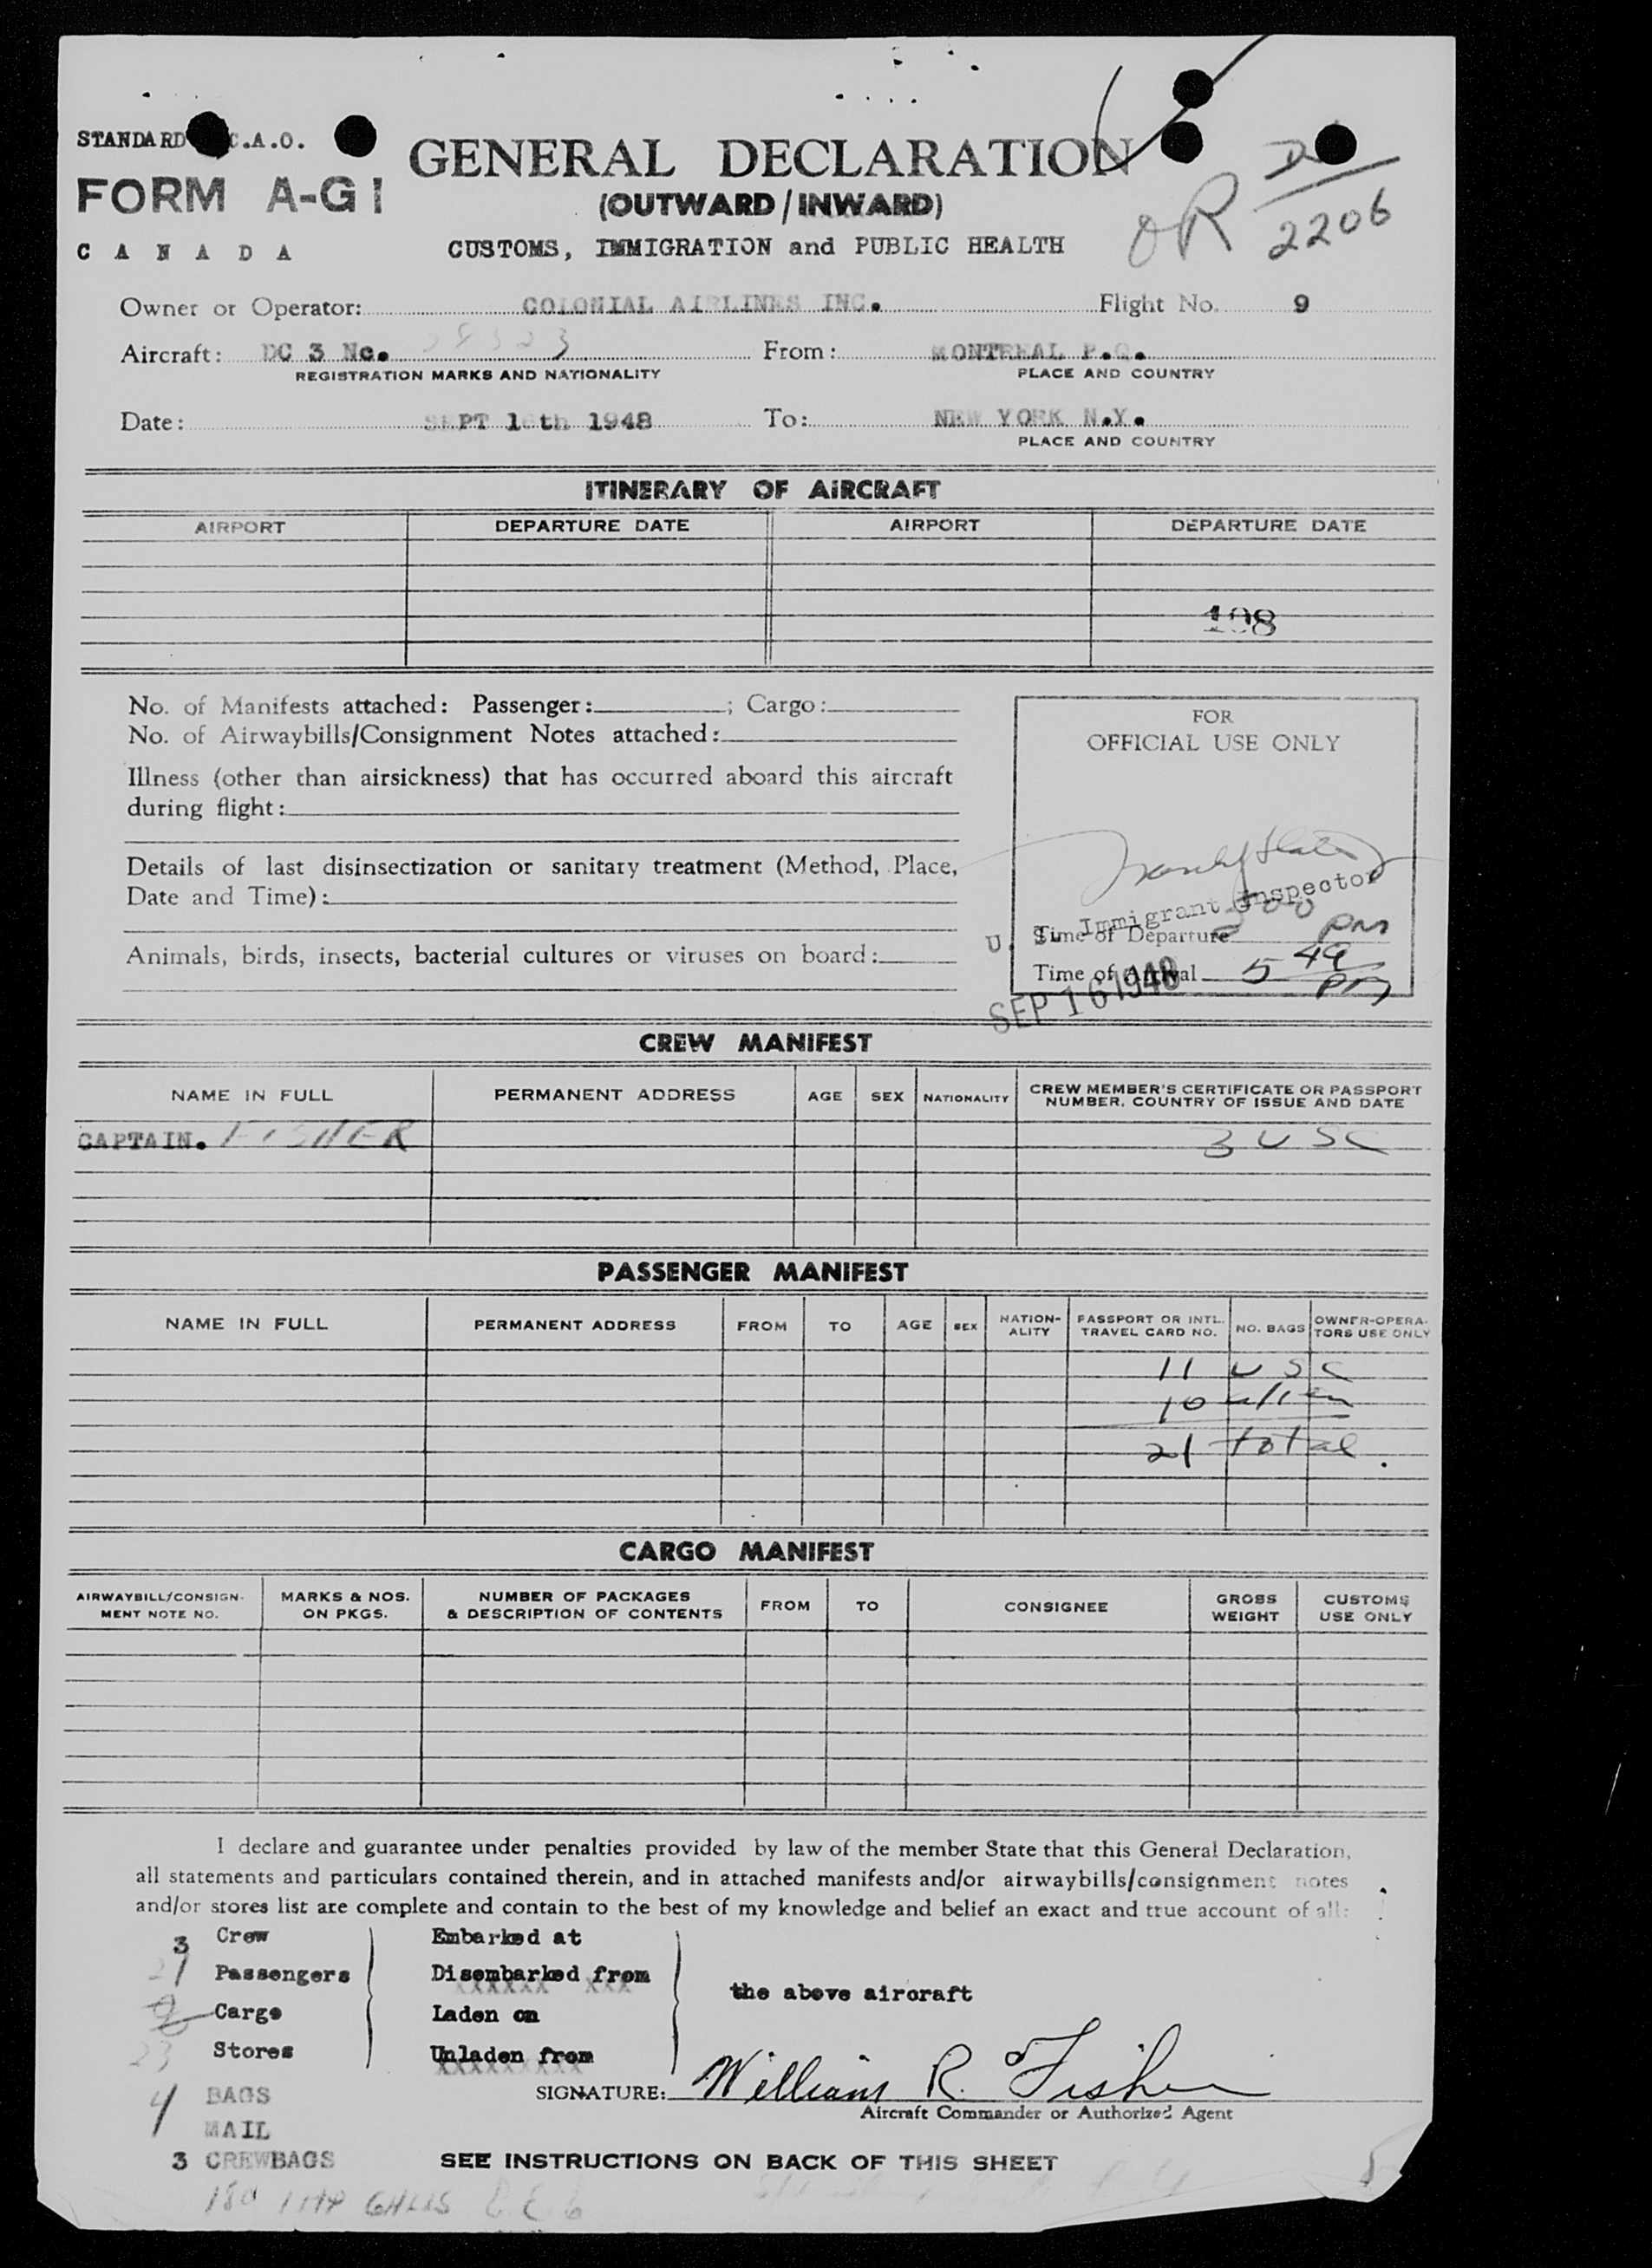 STANDARD C.A.O.
FORM A-G1
CANADA
GENERAL DECLARATION
(OUTWARD/INWARD)
CUSTOMS, IMMIGRATION and PUBLIC HEALTH
OR 2206
Owner or Operator: COLONIAL AIRLINES INC. Flight No. 9
Aircraft: DC 3 No. From: MONTREAL P.Q.
REGISTRATION MARKS AND NATIONALITY PLACE AND COUNTRY
Date: SEPT 16th 1948 To: NEW YORK N.Y.
PLACE AND COUNTRY
ITINERARY OF AIRCRAFT
AIRPORT DEPARTURE DATE AIRPORT DEPARTURE DATE
108
No. of Manifests attached: Passenger: ; Cargo:
No. of Airwaybills/Consignment Notes attached:
Illness (other than airsickness) that has occurred aboard this aircraft
during flight:
Details of last disinsectization or sanitary treatment (Method, Place,
Date and Time):
Animals, birds, insects, bacterial cultures or viruses on board:
FOR
OFFICIAL USE ONLY
U. S. Immigrant Inspector
Time of Departure PM
Time of Arrival 5 49 PM
SEP 16 1948
CREW MANIFEST
NAME IN FULL PERMANENT ADDRESS AGE SEX NATIONALITY CREW MEMBER'S CERTIFICATE OR PASSPORT
NUMBER, COUNTRY OF ISSUE AND DATE
CAPTAIN. FISHER 3 USC
PASSENGER MANIFEST
NAME IN FULL PERMANENT ADDRESS FROM TO AGE SEX NATION-
ALITY PASSPORT OR INTL.
TRAVEL CARD NO. NO. BAGS OWNER-OPERA-
TORS USE ONLY
11 USC
10 alien
21 total
CARGO MANIFEST
AIRWAYBILL/CONSIGN-
MENT NOTE NO. MARKS & NOS.
ON PKGS. NUMBER OF PACKAGES
& DESCRIPTION OF CONTENTS FROM TO CONSIGNEE GROSS
WEIGHT CUSTOMS
USE ONLY
I declare and guarantee under penalties provided by law of the member State that this General Declaration,
all statements and particulars contained therein, and in attached manifests and/or airwaybills/consignment notes
and/or stores list are complete and contain to the best of my knowledge and belief an exact and true account of all:
3 Crew Embarked at
21 Passengers Disembarked from
the above aircraft
Cargo Laden on
23 Stores Unladen from
SIGNATURE: William R. Fisher
Aircraft Commander or Authorized Agent
4 BAGS
MAIL
3 CREWBAGS
SEE INSTRUCTIONS ON BACK OF THIS SHEET
180 IMP GALLS